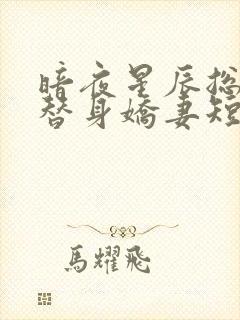 暗夜星辰总
替身娇妻短
馬耀飛